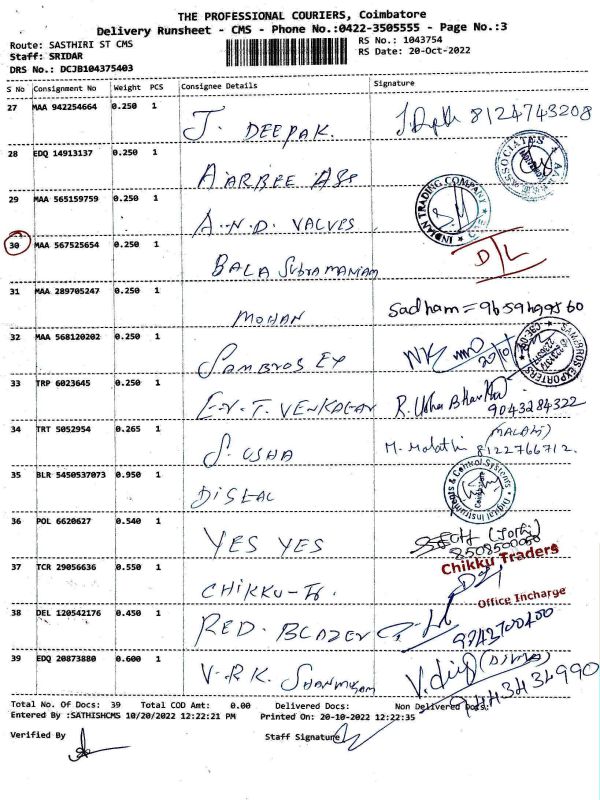 THE PROFESSIONAL COURIERS, Coimbatore
Delivery Runsheet - CMS - Phone No.:0422-3505555 - Page No.:3
Route: SASTHIRI ST CMS
RS No.: 1043754
Staff: SRIDAR
RS Date: 20-Oct-2022
DRS No.: DCJB104375403
S No Consignment No Weight PCS Consignee Details Signature
27 MAA 942254664 0.250 1 J. DEEPAK 8124743208
28 EDQ 14913137 0.250 1 AARBEE ASS
ASSOCIATES
29 MAA 565159759 0.250 1 A.N.D. VALVES
INDIAN TRADING COMPANY
30 MAA 567525654 0.250 1 BALA Subramaniam D/L
31 MAA 289705247 0.250 1 MOHAN Sadham =
32 MAA 568120202 0.250 1 SAMBROS EX
SAMBROS EXPORTERS
33 TRP 6023645 0.250 1 VENKATAR R. Usha 9043284322
34 TRT 5052954 0.265 1 S. USHA M. Malathi (MALATHI)
8122766712.
35 BLR 5450537073 0.950 1 DISEAL
Digital Instruments & Control Systems
Coimbatore
36 POL 6620627 0.540 1 YES YES
8508500060
37 TCR 29056636 0.550 1 CHIKKU-Tr.
Chikku Traders
Office Incharge
38 DEL 120542176 0.450 1 RED. BLAZER
39 EDQ 20873880 0.600 1 V.R.K. Shanmugam
9443434990
Total No. Of Docs: 39 Total COD Amt: 0.00 Delivered Docs: Non Delivered Docs:
Entered By :SATHISHCMS 10/20/2022 12:22:21 PM Printed On: 20-10-2022 12:22:35
Verified By Staff Signature